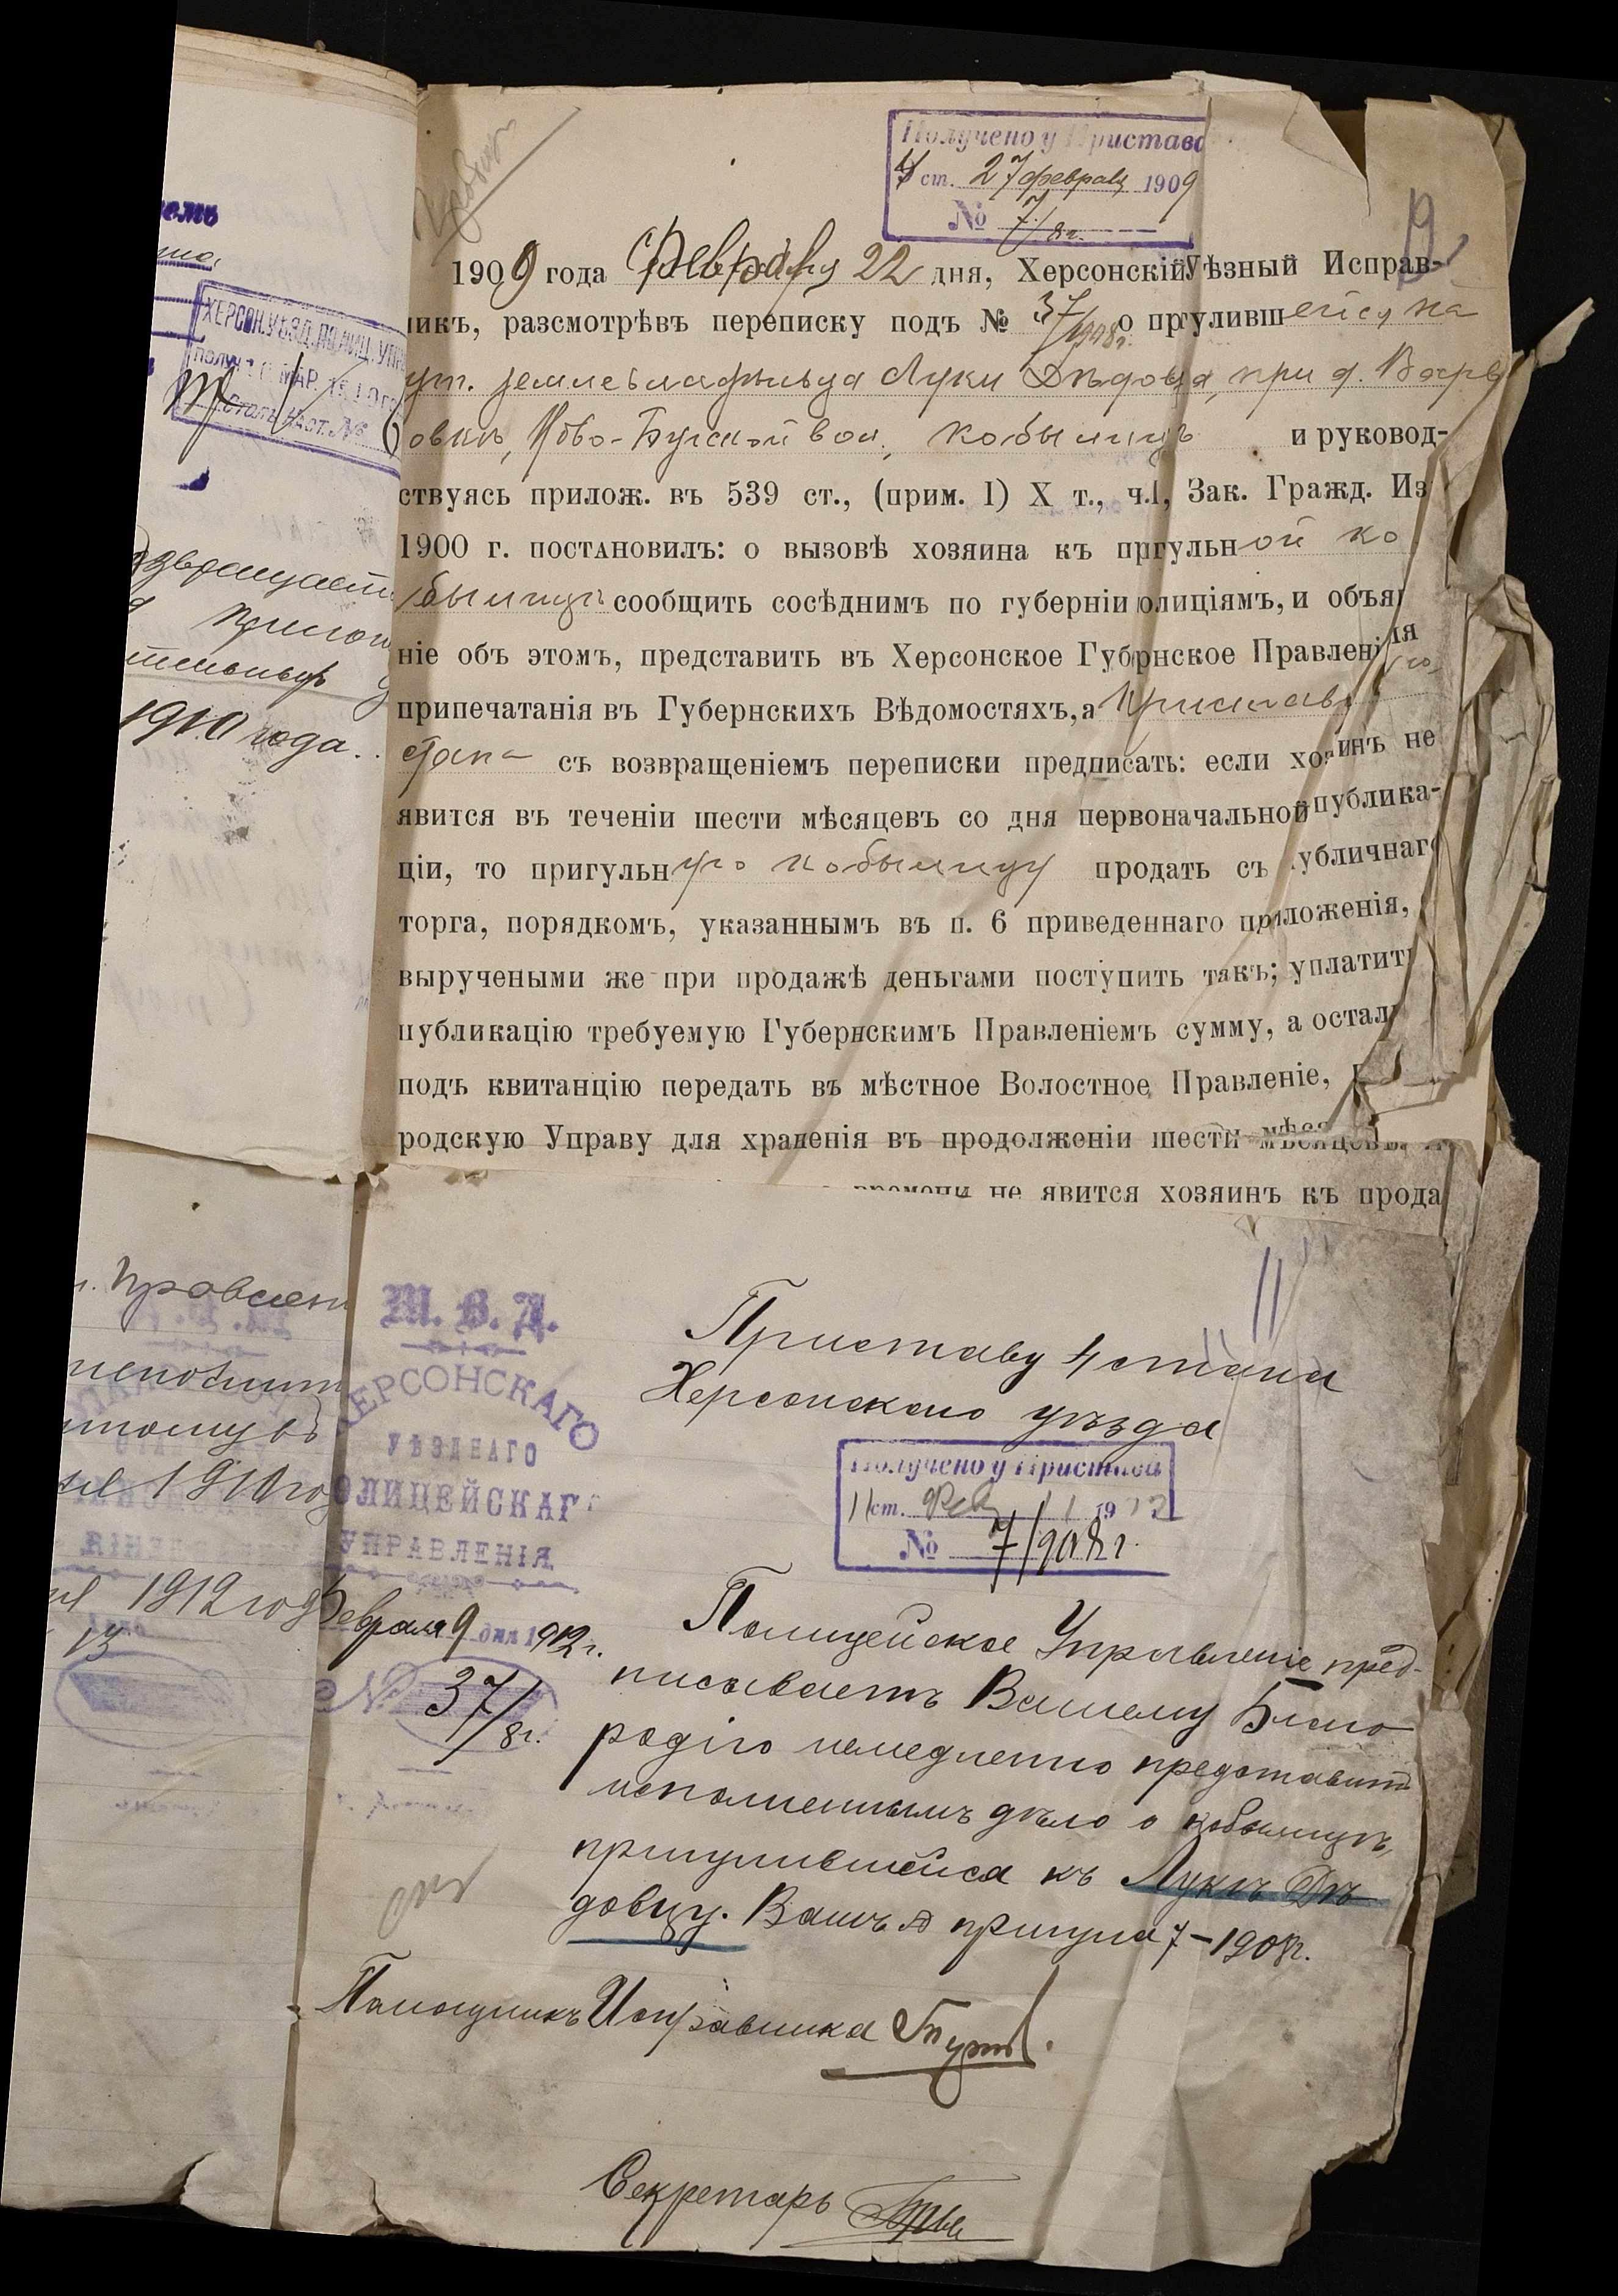 Получено у Пристава
4 ст. 27 февраля 1909
№ 7/8 г.
1909 года Февраля 22 дня, Херсонскій Уѣзный Исправ-
никъ, разсмотрѣвъ переписку подъ № 37/1908 г. о пргулившейся на
ут. землевладѣльца Луки Дѣдовца, при д. Варва
овкѣ, Ново-Бугской вол., кобылицѣ и руковод-
ствуясь прилож. въ 539 ст., (прим. 1) X т., ч.1, Зак. Гражд. Из
1900 г. постановилъ: о вызовѣ хозяина къ пргульной ко
былицѣ сообщить сосѣднимъ по губерніи олиціямъ, и объя
ніе объ этомъ, представить въ Херсонское Губрнское Правлені ля
припечатанія въ Губернскихъ Вѣдомостяхъ, а Приставу
стана съ возвращеніемъ переписки предписать: если хозинъ не
явится въ теченіи шести мѣсяцевъ со дня первоначальной публика-
ціи, то пригульную кобылицу продать съ убличнаго
торга, порядкомъ, указаннымъ въ п. 6 приведеннаго приложенія,
выручеными же при продажѣ деньгами поступить такъ; уплатить
публикацію требуемую Губернскимъ Правленіемъ сумму, а остал
подъ квитанцію передать въ мѣстное Волостное Правленіе,
родскую Управу для храненія въ продолженіи шести мѣсяцевъ.
времени не явится хозяинъ къ прода
ХЕРСОН. УѢЗД. ПОЛИЦ. УПР
ПОЛУЧ МАР. 1910
Столъ НАСТ. №
1910 года.
. Правлен
1910 го
1912 год
13
М. В. Д.
ХЕРСОНСКАГО
УѢЗДНАГО
ОЛИЦЕЙСКАГ
УПРАВЛЕНІЯ
Февраля 9 дня 1912 г.
№ 37/8 г.
Приставу 4 стана
Херсонскаго уѣзда
Получено у Пристава
ст. Фев 11 1912
№ 7/908 г.
Полицейское Управленіе пред-
писываетъ Вашему Благо
родію немедленно представить
исполненнымъ дѣло о кобылицѣ,
пригулившейся къ Лукѣ Дѣ
довцу. Вашъ № пригула 7–1908 г.
Помощникъ Исправника
Секретарь